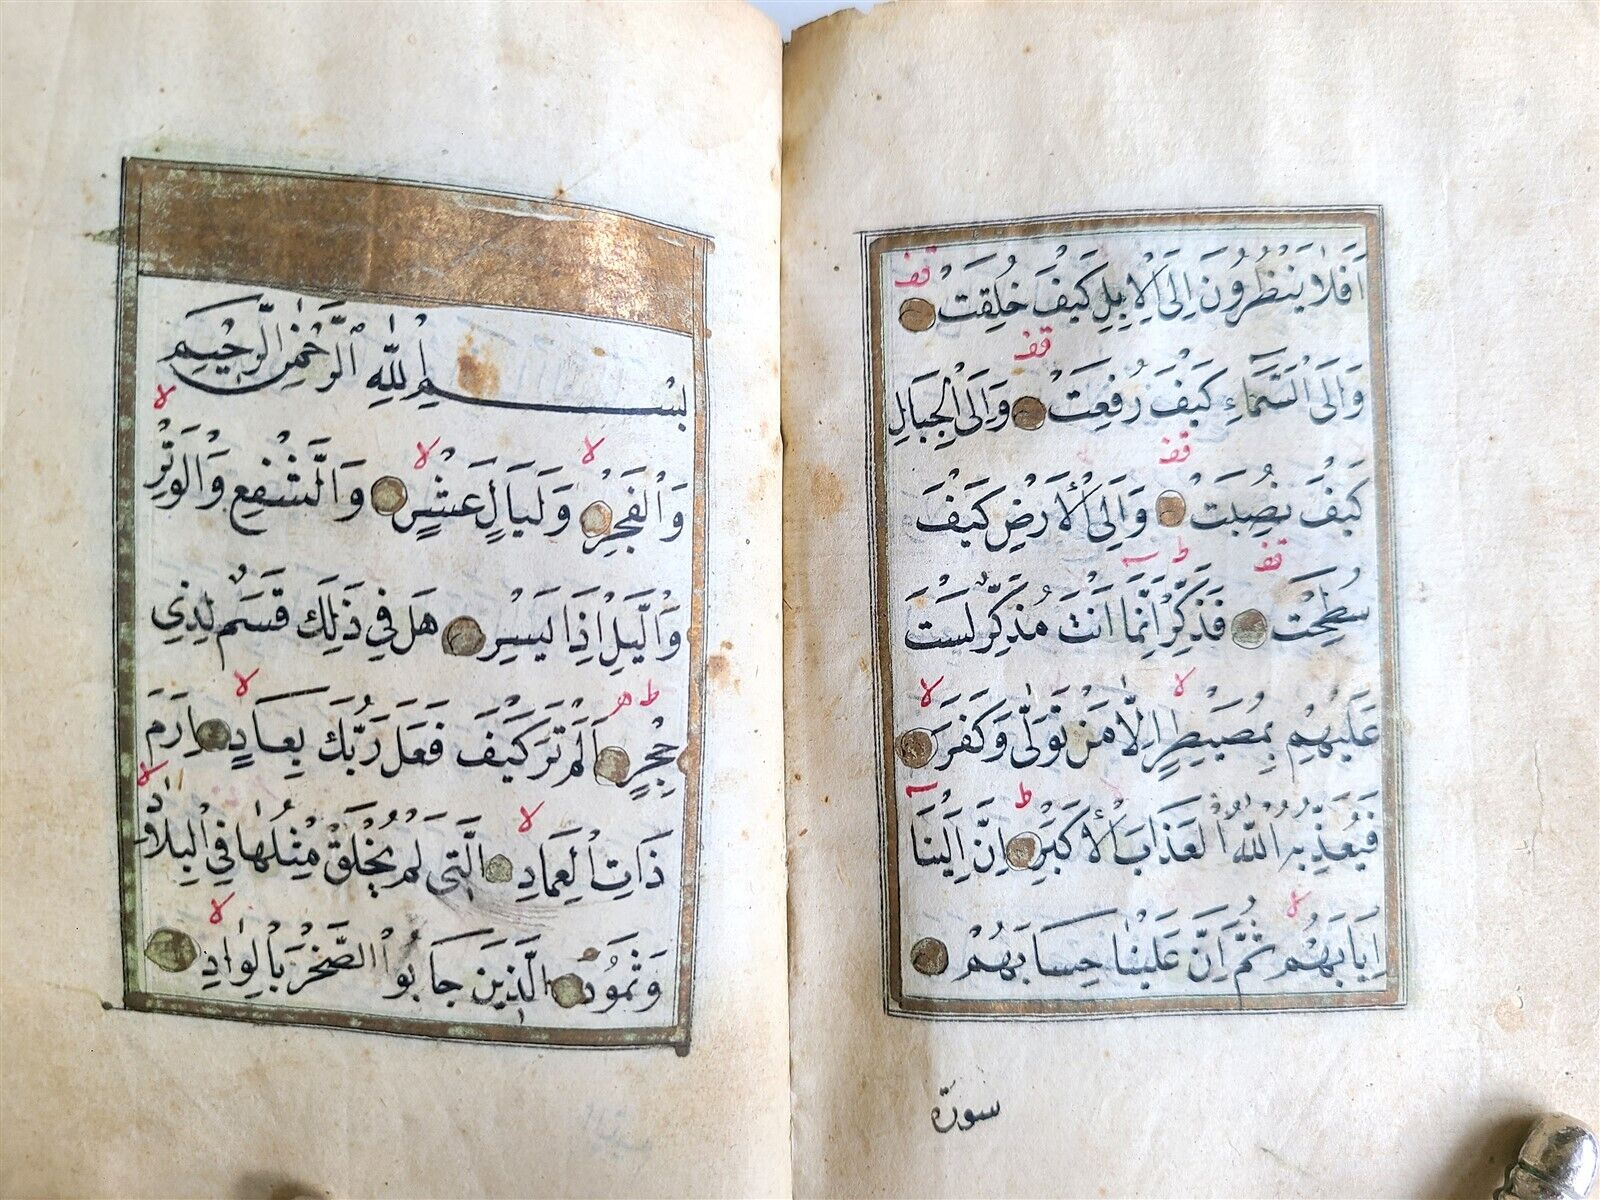 اَفَلَا يَنْظُرُونَ اِلَى الْاِبِلِ كَيْفَ خُلِقَتْ قف
وَاِلَى السَّمَاءِ كَيْفَ رُفِعَتْ قف وَاِلَى الْجِبَالِ
كَيْفَ نُصِبَتْ قف وَاِلَى الْاَرْضِ كَيْفَ
سُطِحَتْ قف فَذَكِّرْ اِنَّمَا اَنْتَ مُذَكِّرٌ ط لَسْتَ
عَلَيْهِمْ بِمُصَيْطِرٍ لا اِلَّا مَنْ تَوَلّٰى وَكَفَرَ لا
فَيُعَذِّبُهُ اللّٰهُ الْعَذَابَ الْاَكْبَرَ ط اِنَّ اِلَيْنَا
اِيَابَهُمْ لا ثُمَّ اِنَّ عَلَيْنَا حِسَابَهُمْ
سورة
بِسْمِ اللّٰهِ الرَّحْمٰنِ الرَّحِيمِ
وَالْفَجْرِ لا وَلَيَالٍ عَشْرٍ لا وَالشَّفْعِ وَالْوَتْرِ لا
وَالَّيْلِ اِذَا يَسْرِ هَلْ فِي ذٰلِكَ قَسَمٌ لِذِي
حِجْرٍ ط اَلَمْ تَرَ كَيْفَ فَعَلَ رَبُّكَ بِعَادٍ لا اِرَمَ
ذَاتِ الْعِمَادِ لا الَّتِي لَمْ يُخْلَقْ مِثْلُهَا فِي الْبِلَادِ لا
وَثَمُودَ الَّذِينَ جَابُوا الصَّخْرَ بِالْوَادِ لا